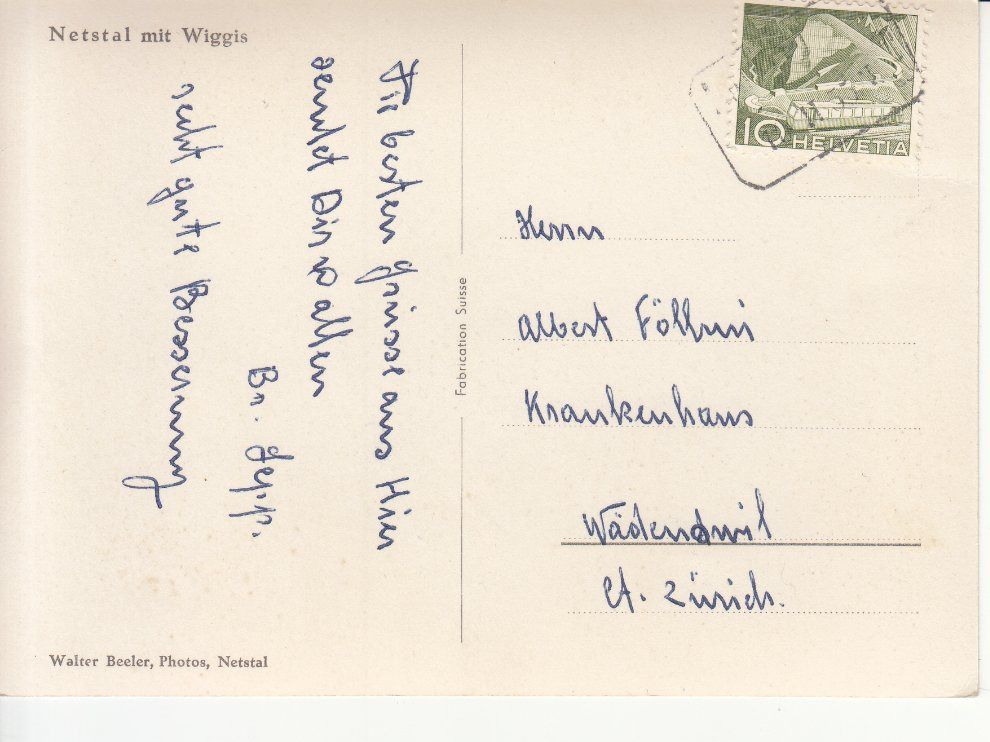 Netstal mit Wiggis
Die besten grüsse aus Hier
sendet Dir & allen
Br. Sepp.
recht gute Besserung
Walter Beeler, Photos, Netstal
Fabrication Suisse
10 HELVETIA
Herrn
Albert
Krankenhaus
Wädenswil
Ct. Zürich.